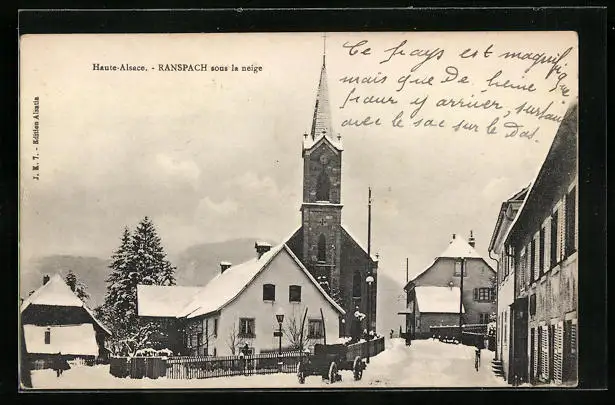 Haute-Alsace. - RANSPACH sous la neige
Ce pays est magnifique
mais que de peine
pour y arriver, surtout
avec le sac sur le dos.
J. K. 7. - Edition Alsatia